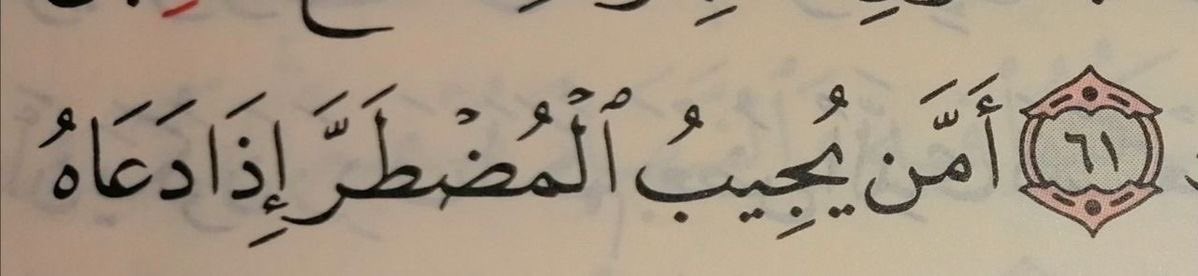 ٦١ أَمَّن يُجِيبُ ٱلْمُضْطَرَّ إِذَا دَعَاهُ